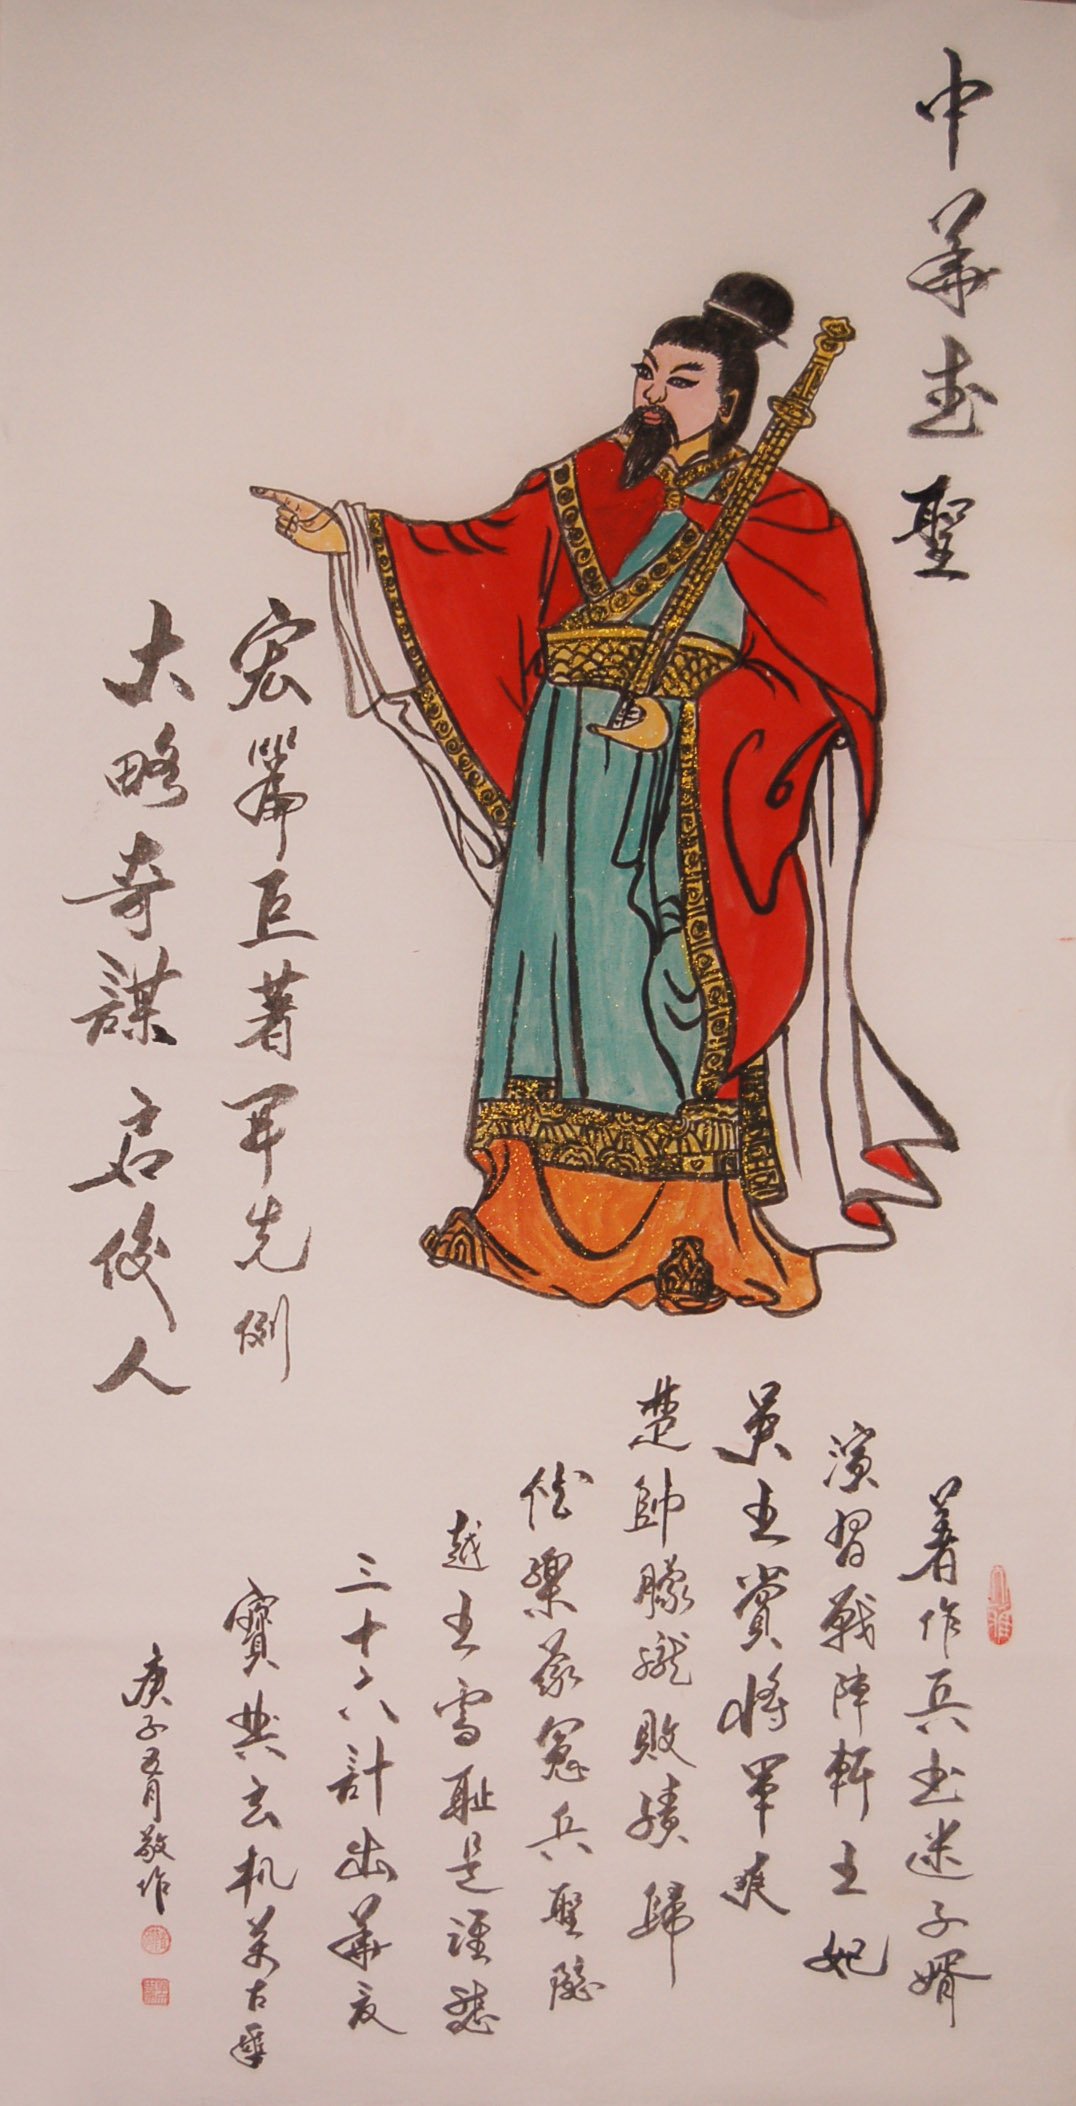 中華武聖
宏篇巨著开先例
大略奇謀启後人
著作兵书迷子婿
演習戰陣斬王妃
吴王賞將軍爽
楚帥朦朧敗績歸
蒙冤兵聖隐
越王雪耻是谁
三十六計出華夏
寶典玄机萬古垂
庚子五月敬作